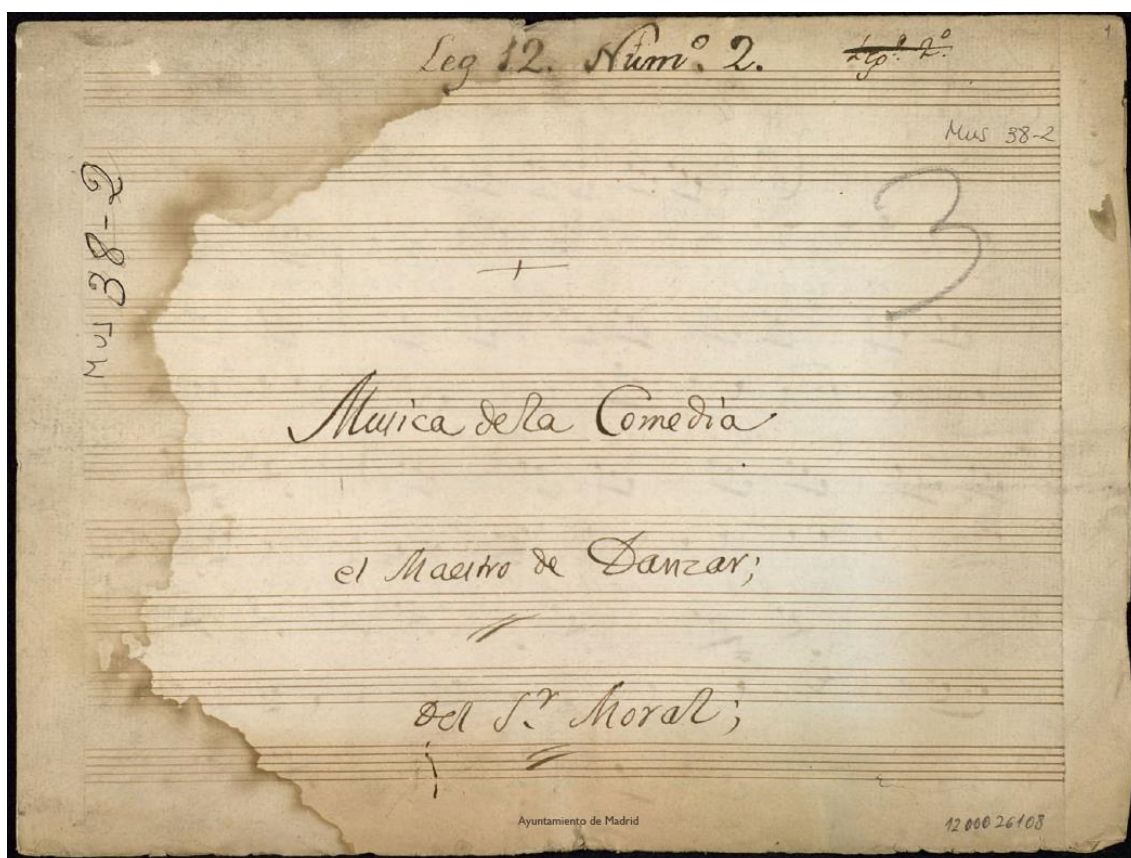 1
Leg 12. Num.º 2.
Leg.º 2.º
Mus 38-2
Mus 38-2
3
Musica de la Comedia
el Maestro de Danzar;
del S.r Moral;
Ayuntamiento de Madrid
1200026108